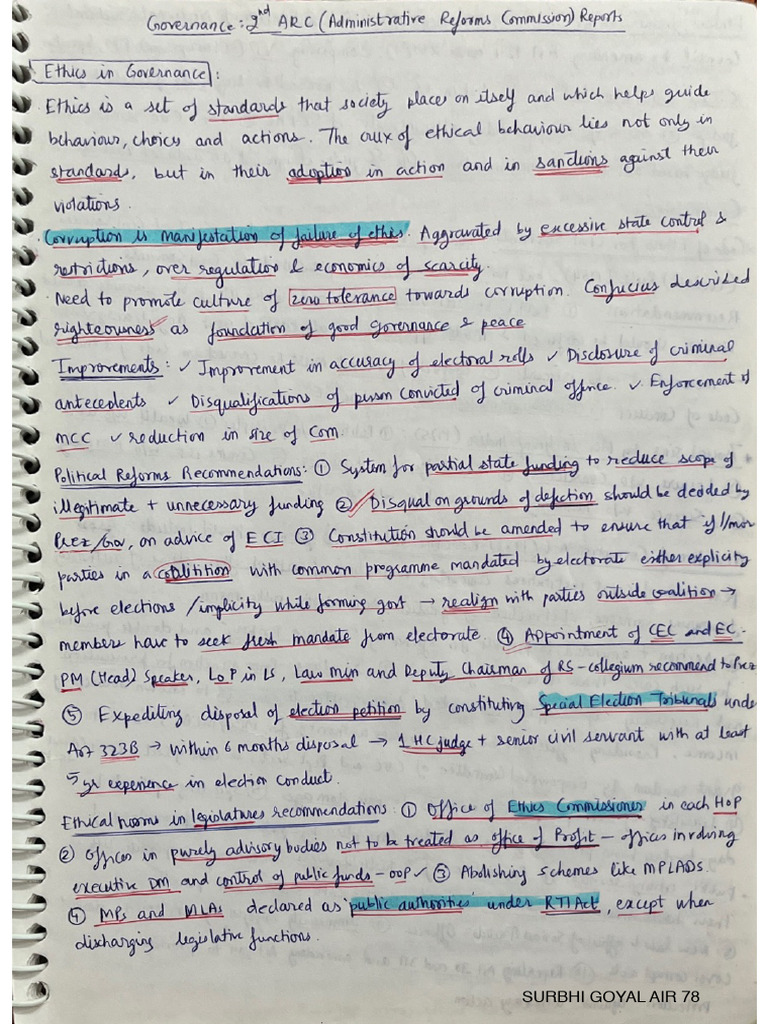 Governance: 2nd ARC (Administrative Reforms Commission) Reports
Ethics in Governance:
Ethics is a set of standards that society places on itself and which helps guide
behaviour, choices and actions. The crux of ethical behaviour lies not only in
standards, but in their adoption in action and in sanctions against their
violations.
Corruption is manifestation of failure of ethics. Aggravated by excessive state control &
restrictions, over regulation & economics of scarcity.
Need to promote culture of zero tolerance towards corruption. Confucius described
righteousness as foundation of good governance & peace
Improvements: ✓ Improvement in accuracy of electoral rolls ✓ Disclosure of criminal
antecedents ✓ Disqualifications of person convicted of criminal offence. ✓ Enforcement of
MCC ✓ reduction in size of Com.
Political Reforms Recommendations: ① System for partial state funding to reduce scope of
illegitimate + unnecessary funding ② Disqual on grounds of defection should be decided by
Prez/Gov, on advice of ECI ③ Constitution should be amended to ensure that if 1/more
parties in a coalition with common programme mandated by electorate either explicity
before elections/implicity while forming govt → realign with parties outside coalition →
member have to seek fresh mandate from electorate. ④ Appointment of CEC and EC -
PM (Head) Speaker, LoP in LS, Law Min and Deputy Chairman of RS - collegium recommend to Prez
⑤ Expediting disposal of election petition by constituting Special Election Tribunals under
Art 323B → within 6 months disposal → 1 HC judge + senior civil servant with at least
5 yr experience in election conduct.
Ethical norms in legislatures recommendations: ① Office of Ethics Commissioner in each HoP
② Offices in purely advisory bodies not to be treated as office of Profit - offices involving
executive DM and control of public funds - OOP ✓ ③ Abolishing schemes like MPLADS.
④ MPs and MLAs declared as 'public authorities' under RTI Act, except when
discharging legislative functions.
SURBHI GOYAL AIR 78